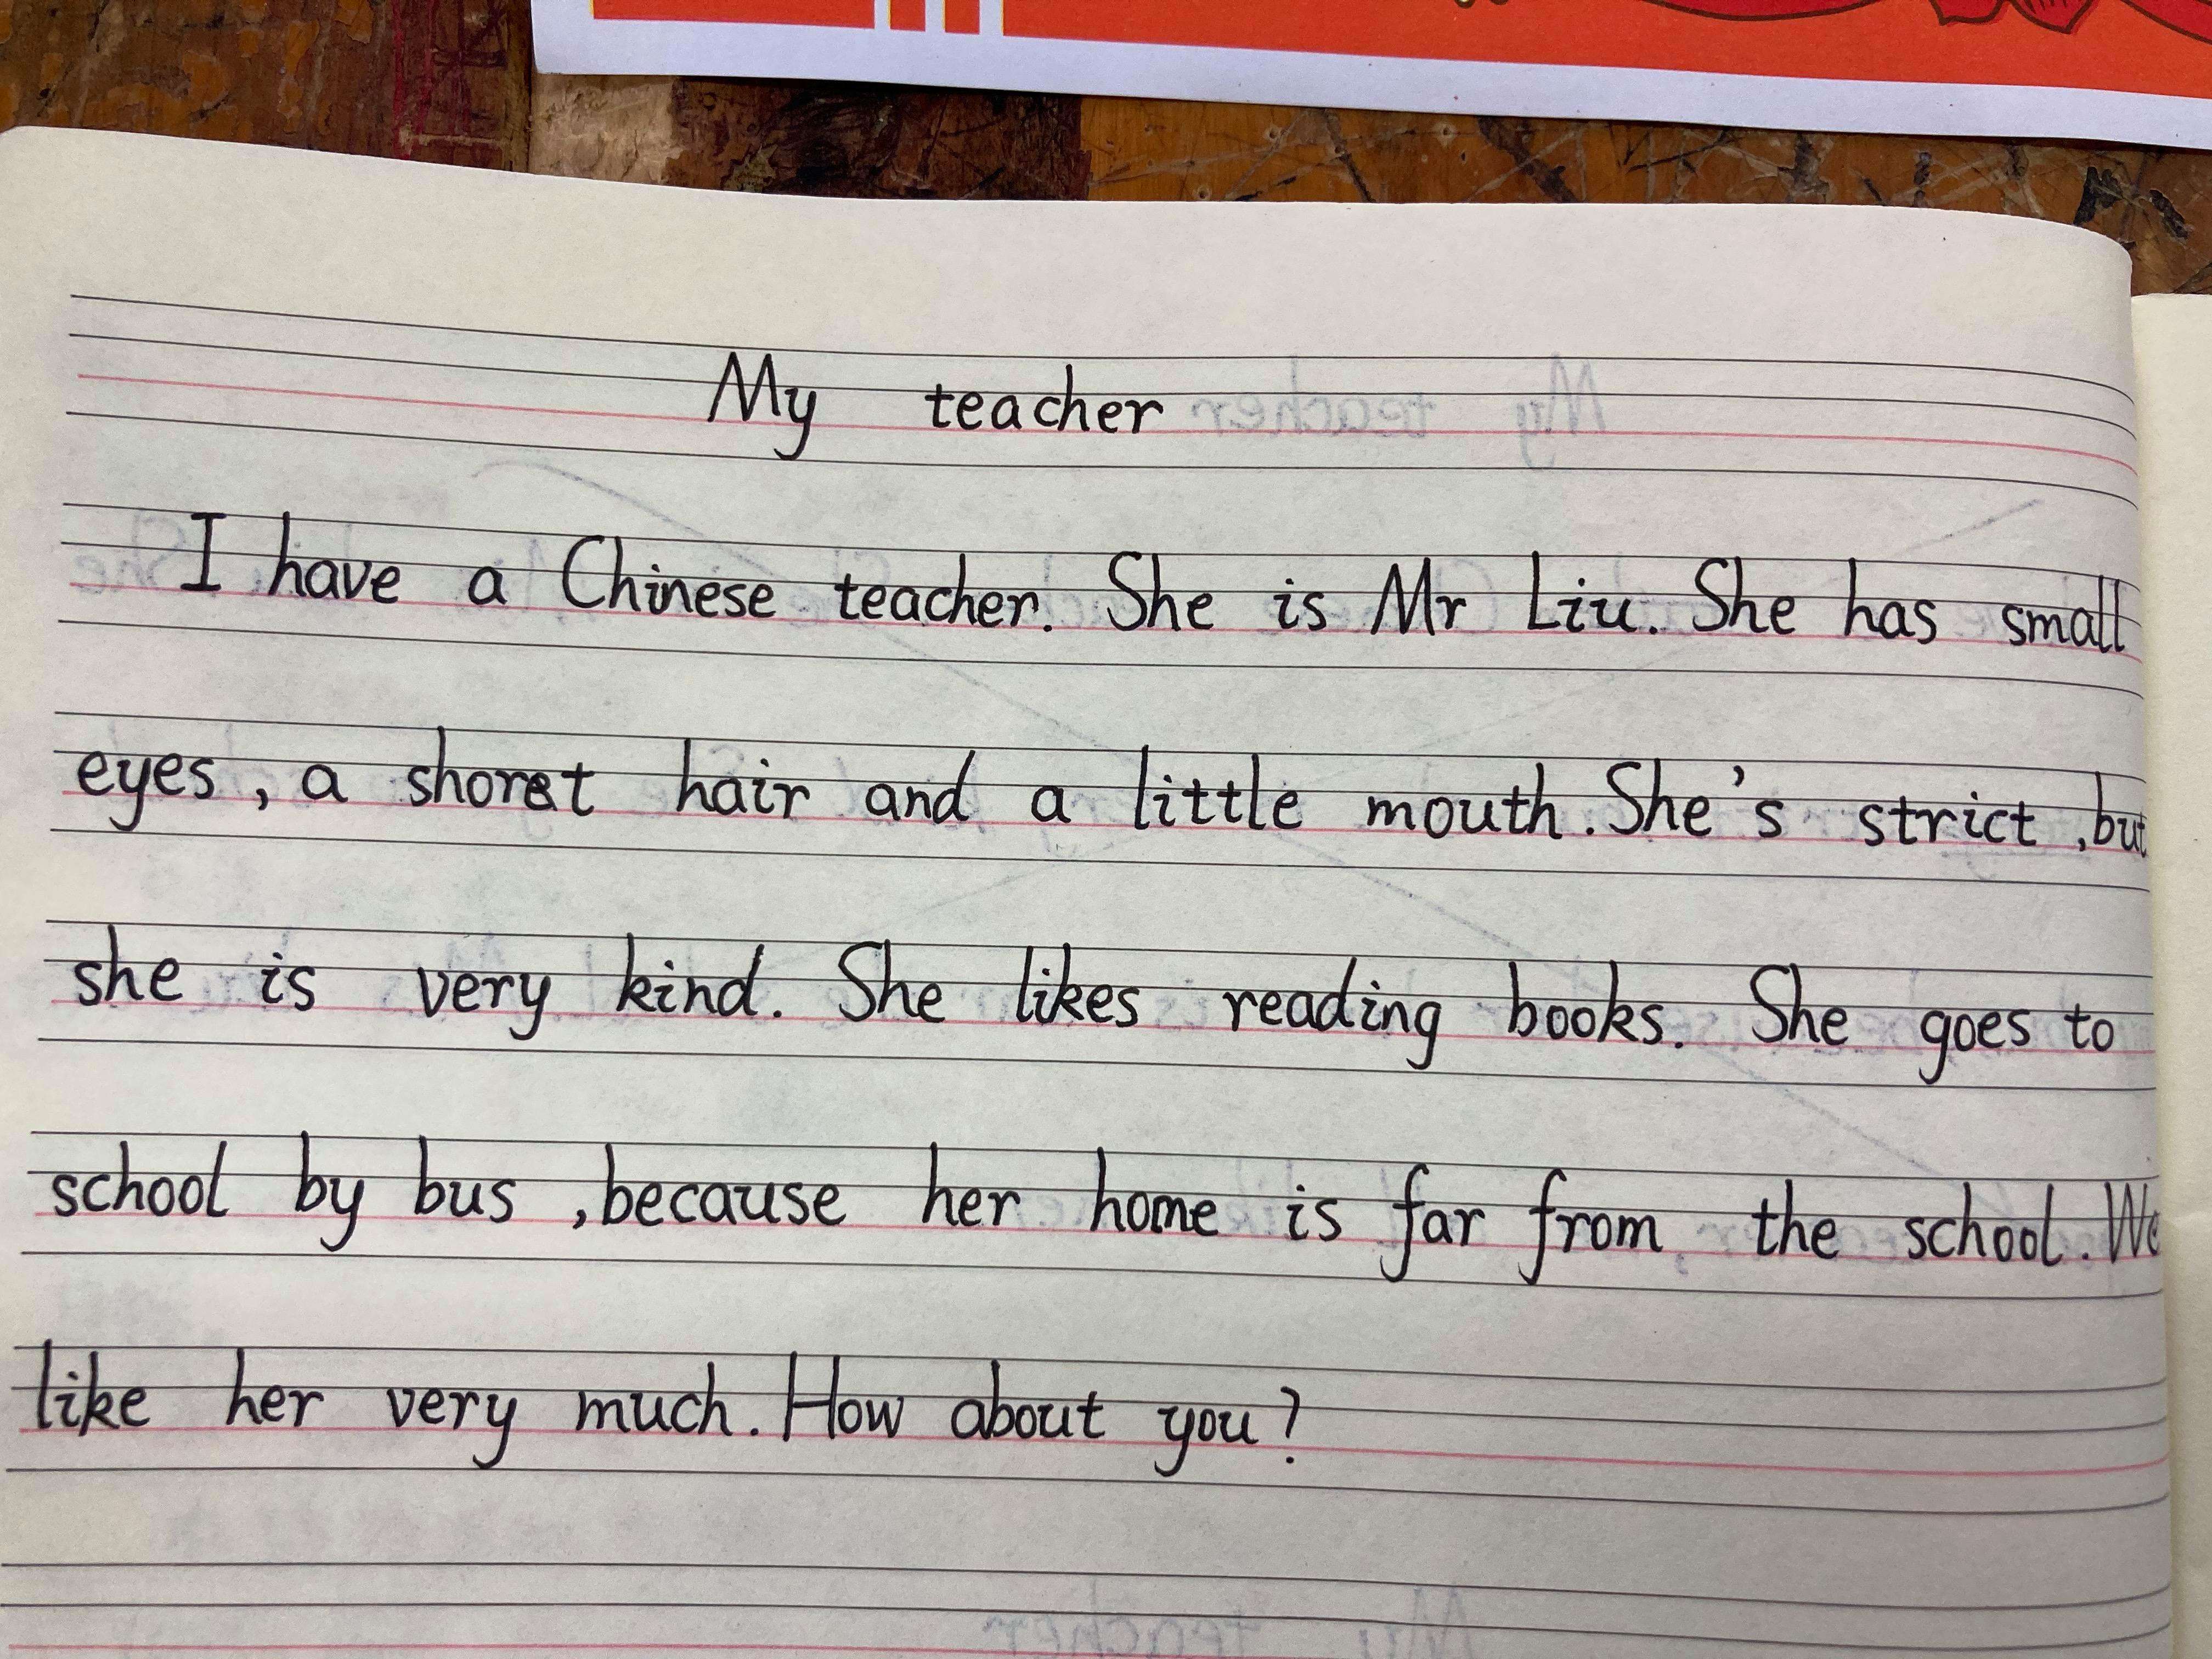 My teacher
I have a Chinese teacher. She is Mr Liu. She has small
eyes, a shoret hair and a little mouth. She's strict, but
she is very kind. She likes reading books. She goes to
school by bus, because her home is far from the school. We
like her very much. How about you?